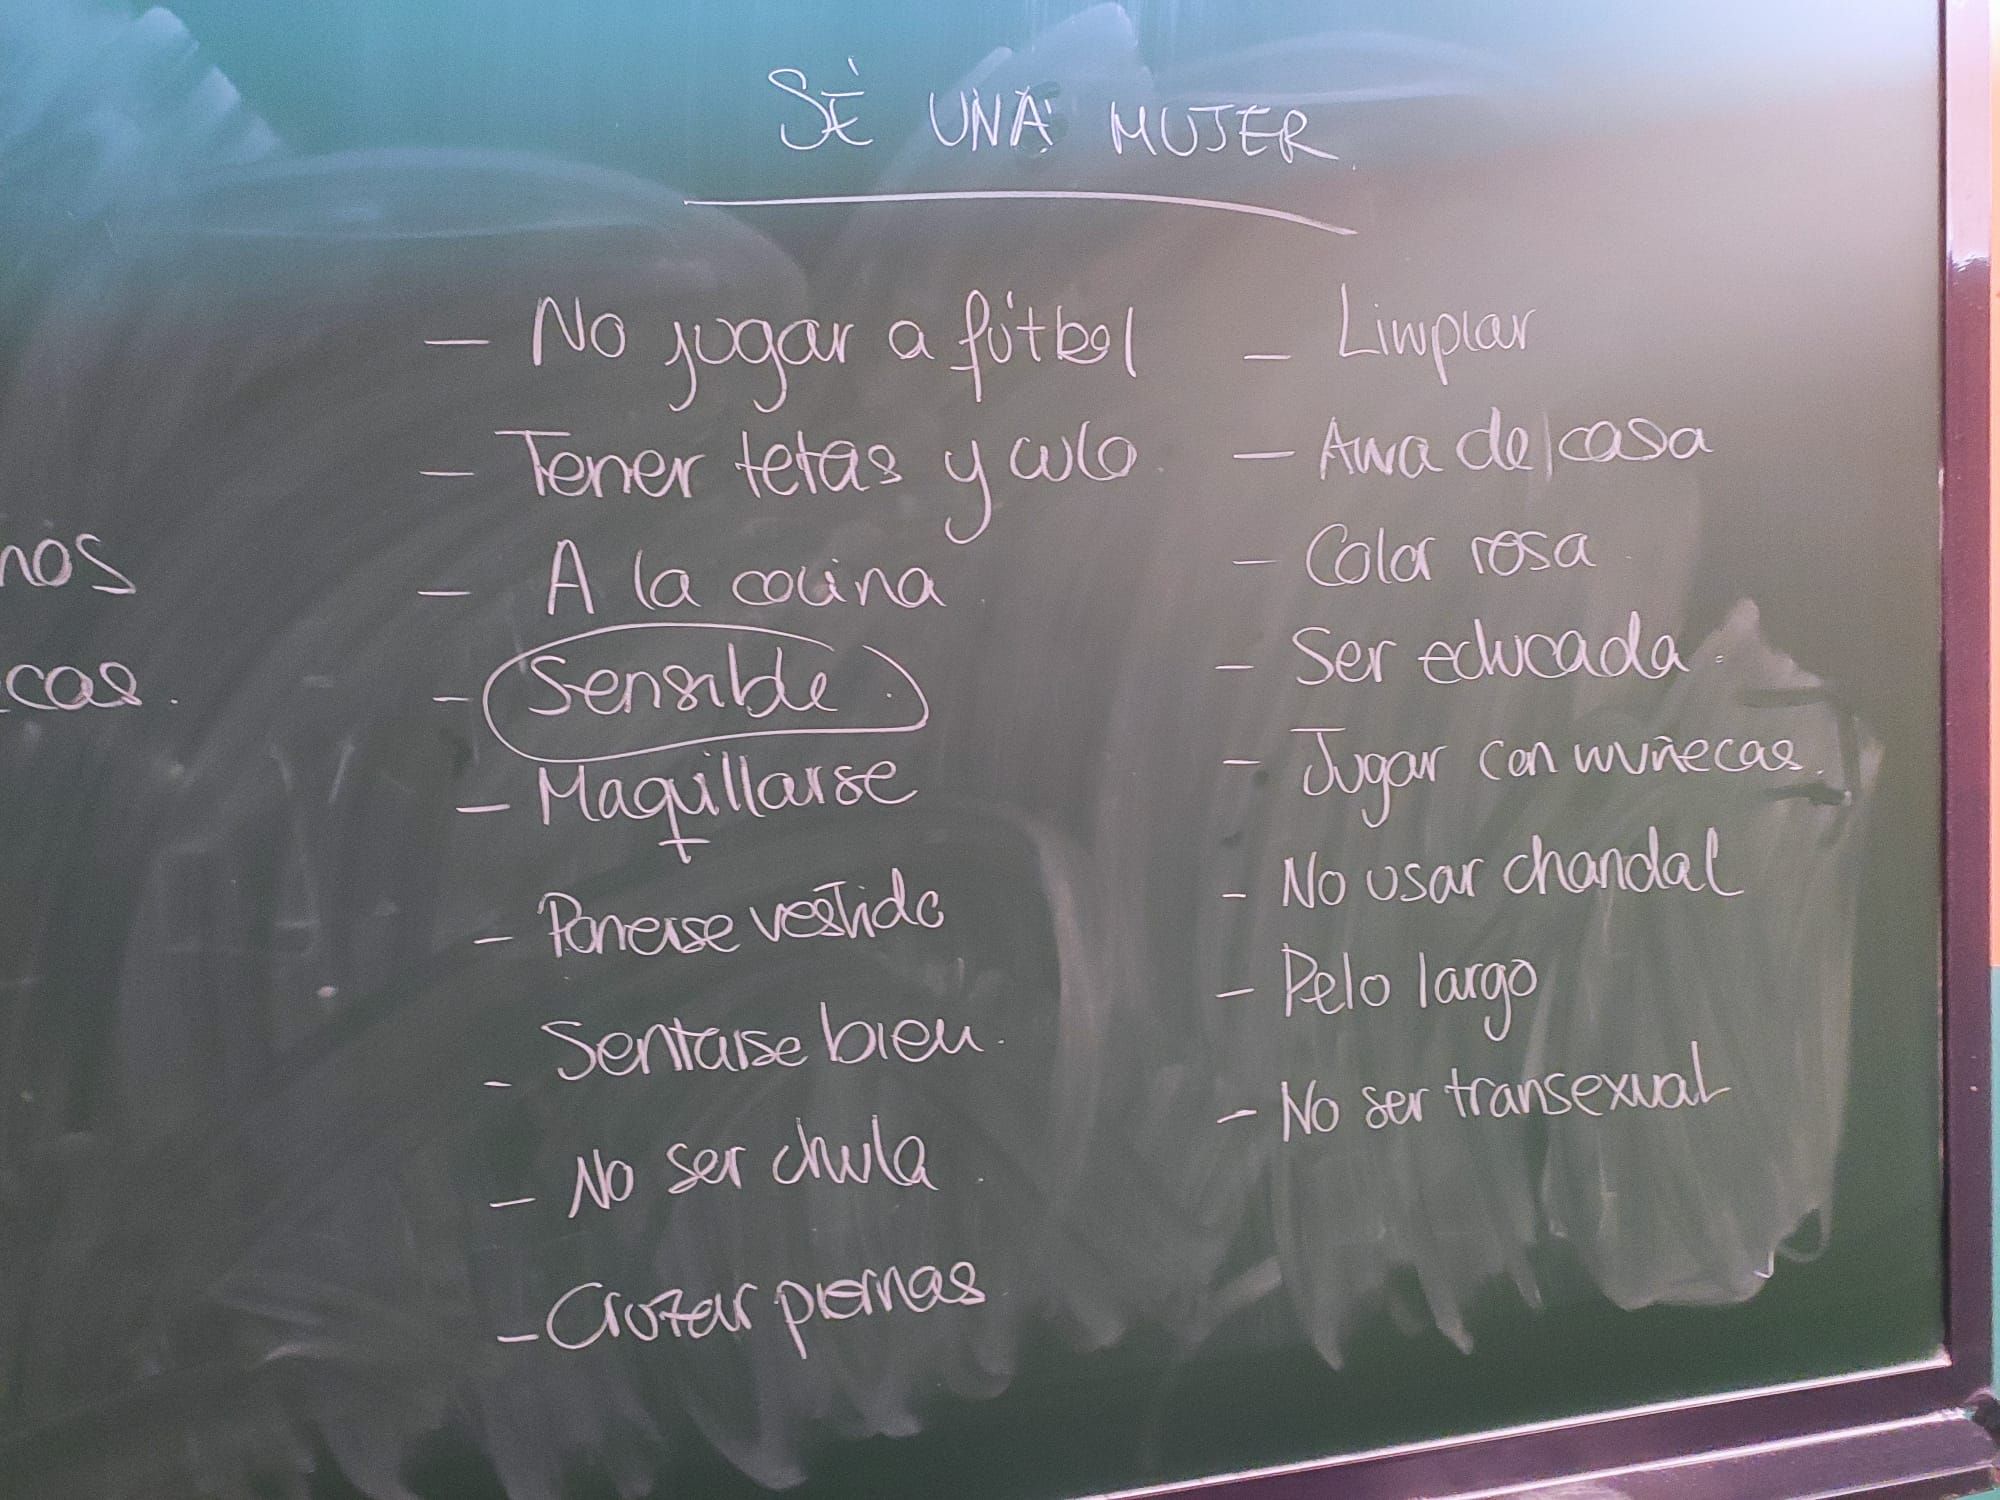 SÉ UNA MUJER
- No jugar a fútbol
- Tener tetas y culo
- A la cocina
- Sensible
- Maquillarse
- Ponerse vestido
- Sentarse bien
- No ser chula
- Cruzar piernas
- Limpiar
- Ama de casa
- Color rosa
- Ser educada
- Jugar con muñecas
- No usar chandal
- Pelo largo
- No ser transexual
nos
cas.